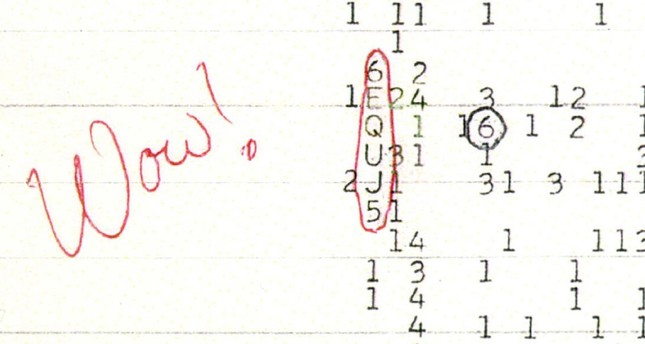 1 11 1 1
1
6 2
1 E 24 3 12 1
Q 1 1 6 1 2 1
U 31 1 3
2 J 1 31 3 111
5 1
14 1 113
1 3 1 1
1 4 1 1
4 1 1 1 1
Wow!